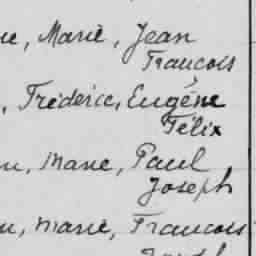 Marie, Jean
Francois
Fréderic, Eugène
Félix
Marie, Paul
Joseph
Marie, Francois